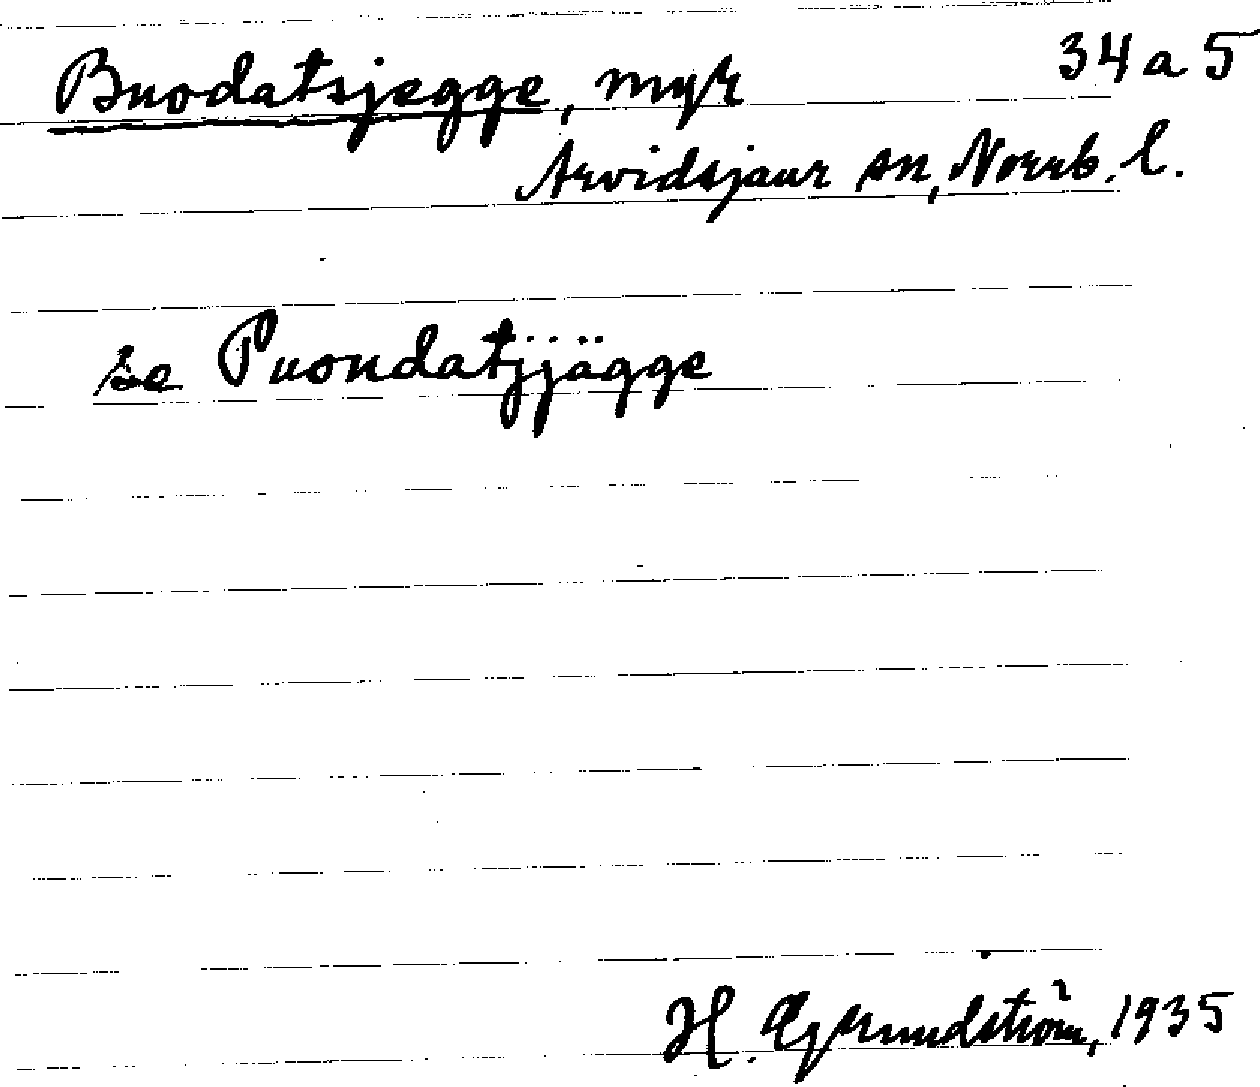 Buodatsjegge, myr 34 a 5
Arvidsjaur sn, Norrb. l.
se Puondatjjägge
H. Grundström, 1935